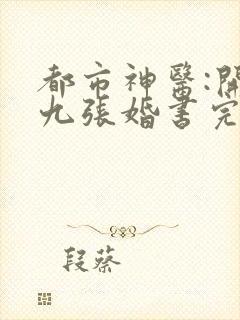 都市神醫:開
九張婚書完
段蔡